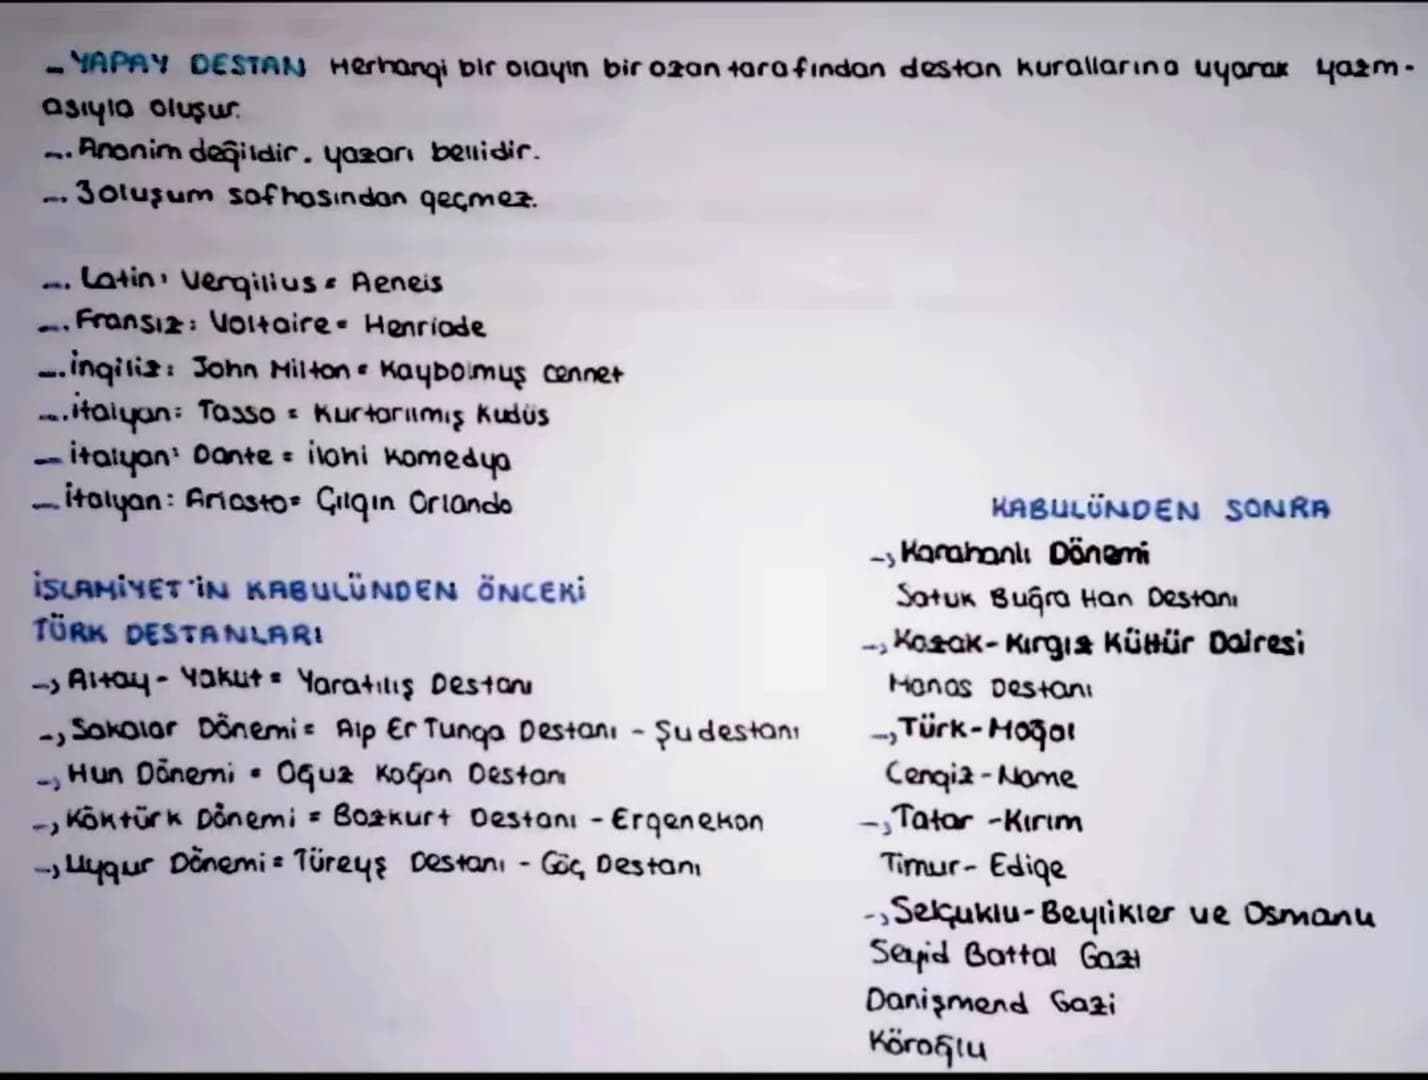 - YAPAY DESTAN Herhangi bir olayın bir ozan tarafından destan kurallarına uyarak yazm-
asıyla oluşur.
-. Anonim değildir. yazarı bellidir.
-. 3 oluşum safhasından geçmez.
-. Latin: Vergilius = Aeneis
-. Fransız: Voltaire = Henriade
-. ingiliz: John Milton = Kaybolmuş cennet
-. italyan: Tasso = Kurtarılmış Kudüs
- italyan: Dante = ilahi Komedya
- İtalyan: Ariosto = Çılgın Orlando
İSLAMİYET'İN KABULÜNDEN ÖNCEKİ
TÜRK DESTANLARI
-> Altay - Yakut = Yaratılış Destanı
-> Sakalar Dönemi = Alp Er Tunga Destanı - Şu destanı
-> Hun Dönemi = Oğuz Kağan Destanı
-> Köktürk Dönemi = Bozkurt Destanı - Ergenekon
-> Uygur Dönemi = Türeyş Destanı - Göç Destanı
KABULÜNDEN SONRA
-> Karahanlı Dönemi
Satuk Buğra Han Destanı
-> Kazak - Kırgız Kültür Dairesi
Manas Destanı
-> Türk - Moğol
Cengiz - Name
-> Tatar - Kırım
Timur - Edige
-> Selçuklu - Beylikler ve Osmanlı
Seyid Battal Gazi
Danişmend Gazi
Köroğlu